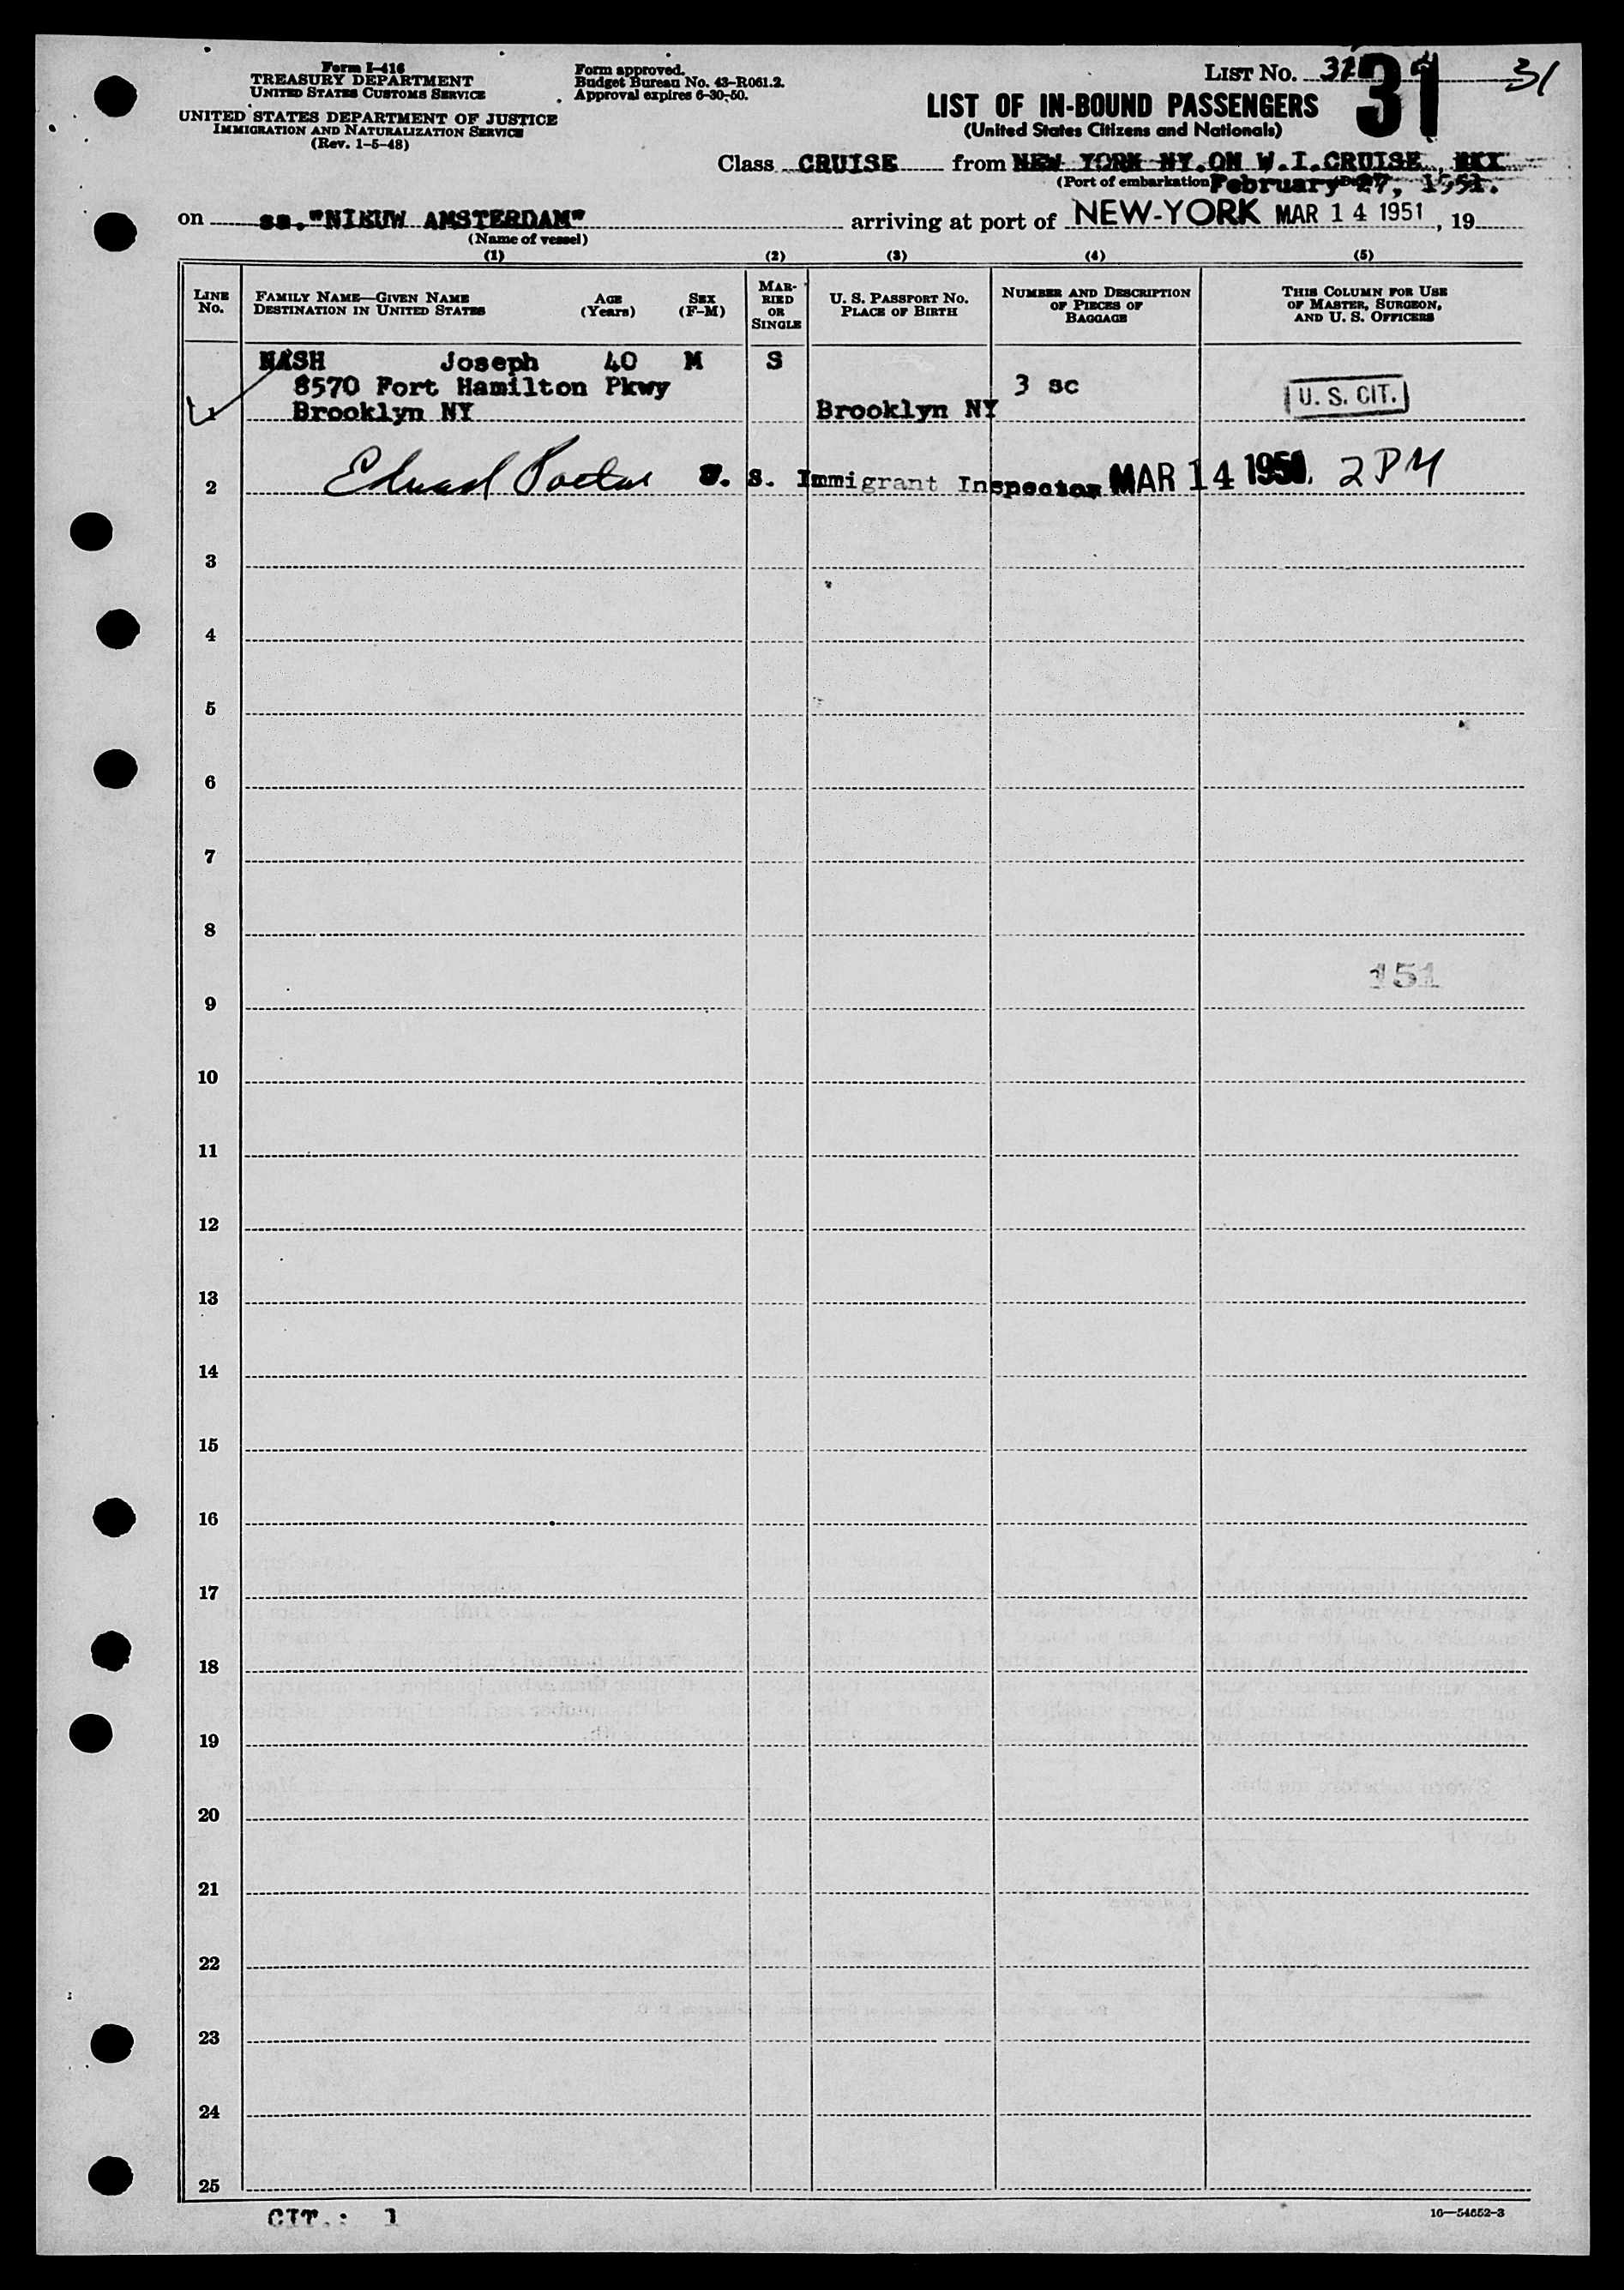 Form I-416
TREASURY DEPARTMENT
UNITED STATES CUSTOMS SERVICE
UNITED STATES DEPARTMENT OF JUSTICE
IMMIGRATION AND NATURALIZATION SERVICE
(Rev. 1-5-48)
Form approved.
Budget Bureau No. 43-R061.2.
Approval expires 6-30-50.
LIST NO. 31 31
LIST OF IN-BOUND PASSENGERS
(United States Citizens and Nationals)
Class CRUISE from NEW YORK NY. ON W.I.CRUISE,
(Port of embarkation) February 27, 1951.
on ss. "NIEUW AMSTERDAM" arriving at port of NEW-YORK MAR 14 1951, 19
(Name of vessel)
(1) (2) (3) (4) (5)
LINE NO.
FAMILY NAME—GIVEN NAME
DESTINATION IN UNITED STATES
AGE (Years)
SEX (F-M)
MARRIED OR SINGLE
U. S. PASSPORT NO.
PLACE OF BIRTH
NUMBER AND DESCRIPTION
OF PIECES OF
BAGGAGE
THIS COLUMN FOR USE
OF MASTER, SURGEON,
AND U. S. OFFICERS
NASH Joseph 40 M S
8570 Fort Hamilton Pkwy 3 sc U. S. CIT.
1 Brooklyn NY Brooklyn NY
2 U. S. Immigrant Inspector MAR 14 1951. 2 PM
3
4
5
6
7
8
151
9
10
11
12
13
14
15
16
17
18
19
20
21
22
23
24
25
CIT.: 1
16—54652-3